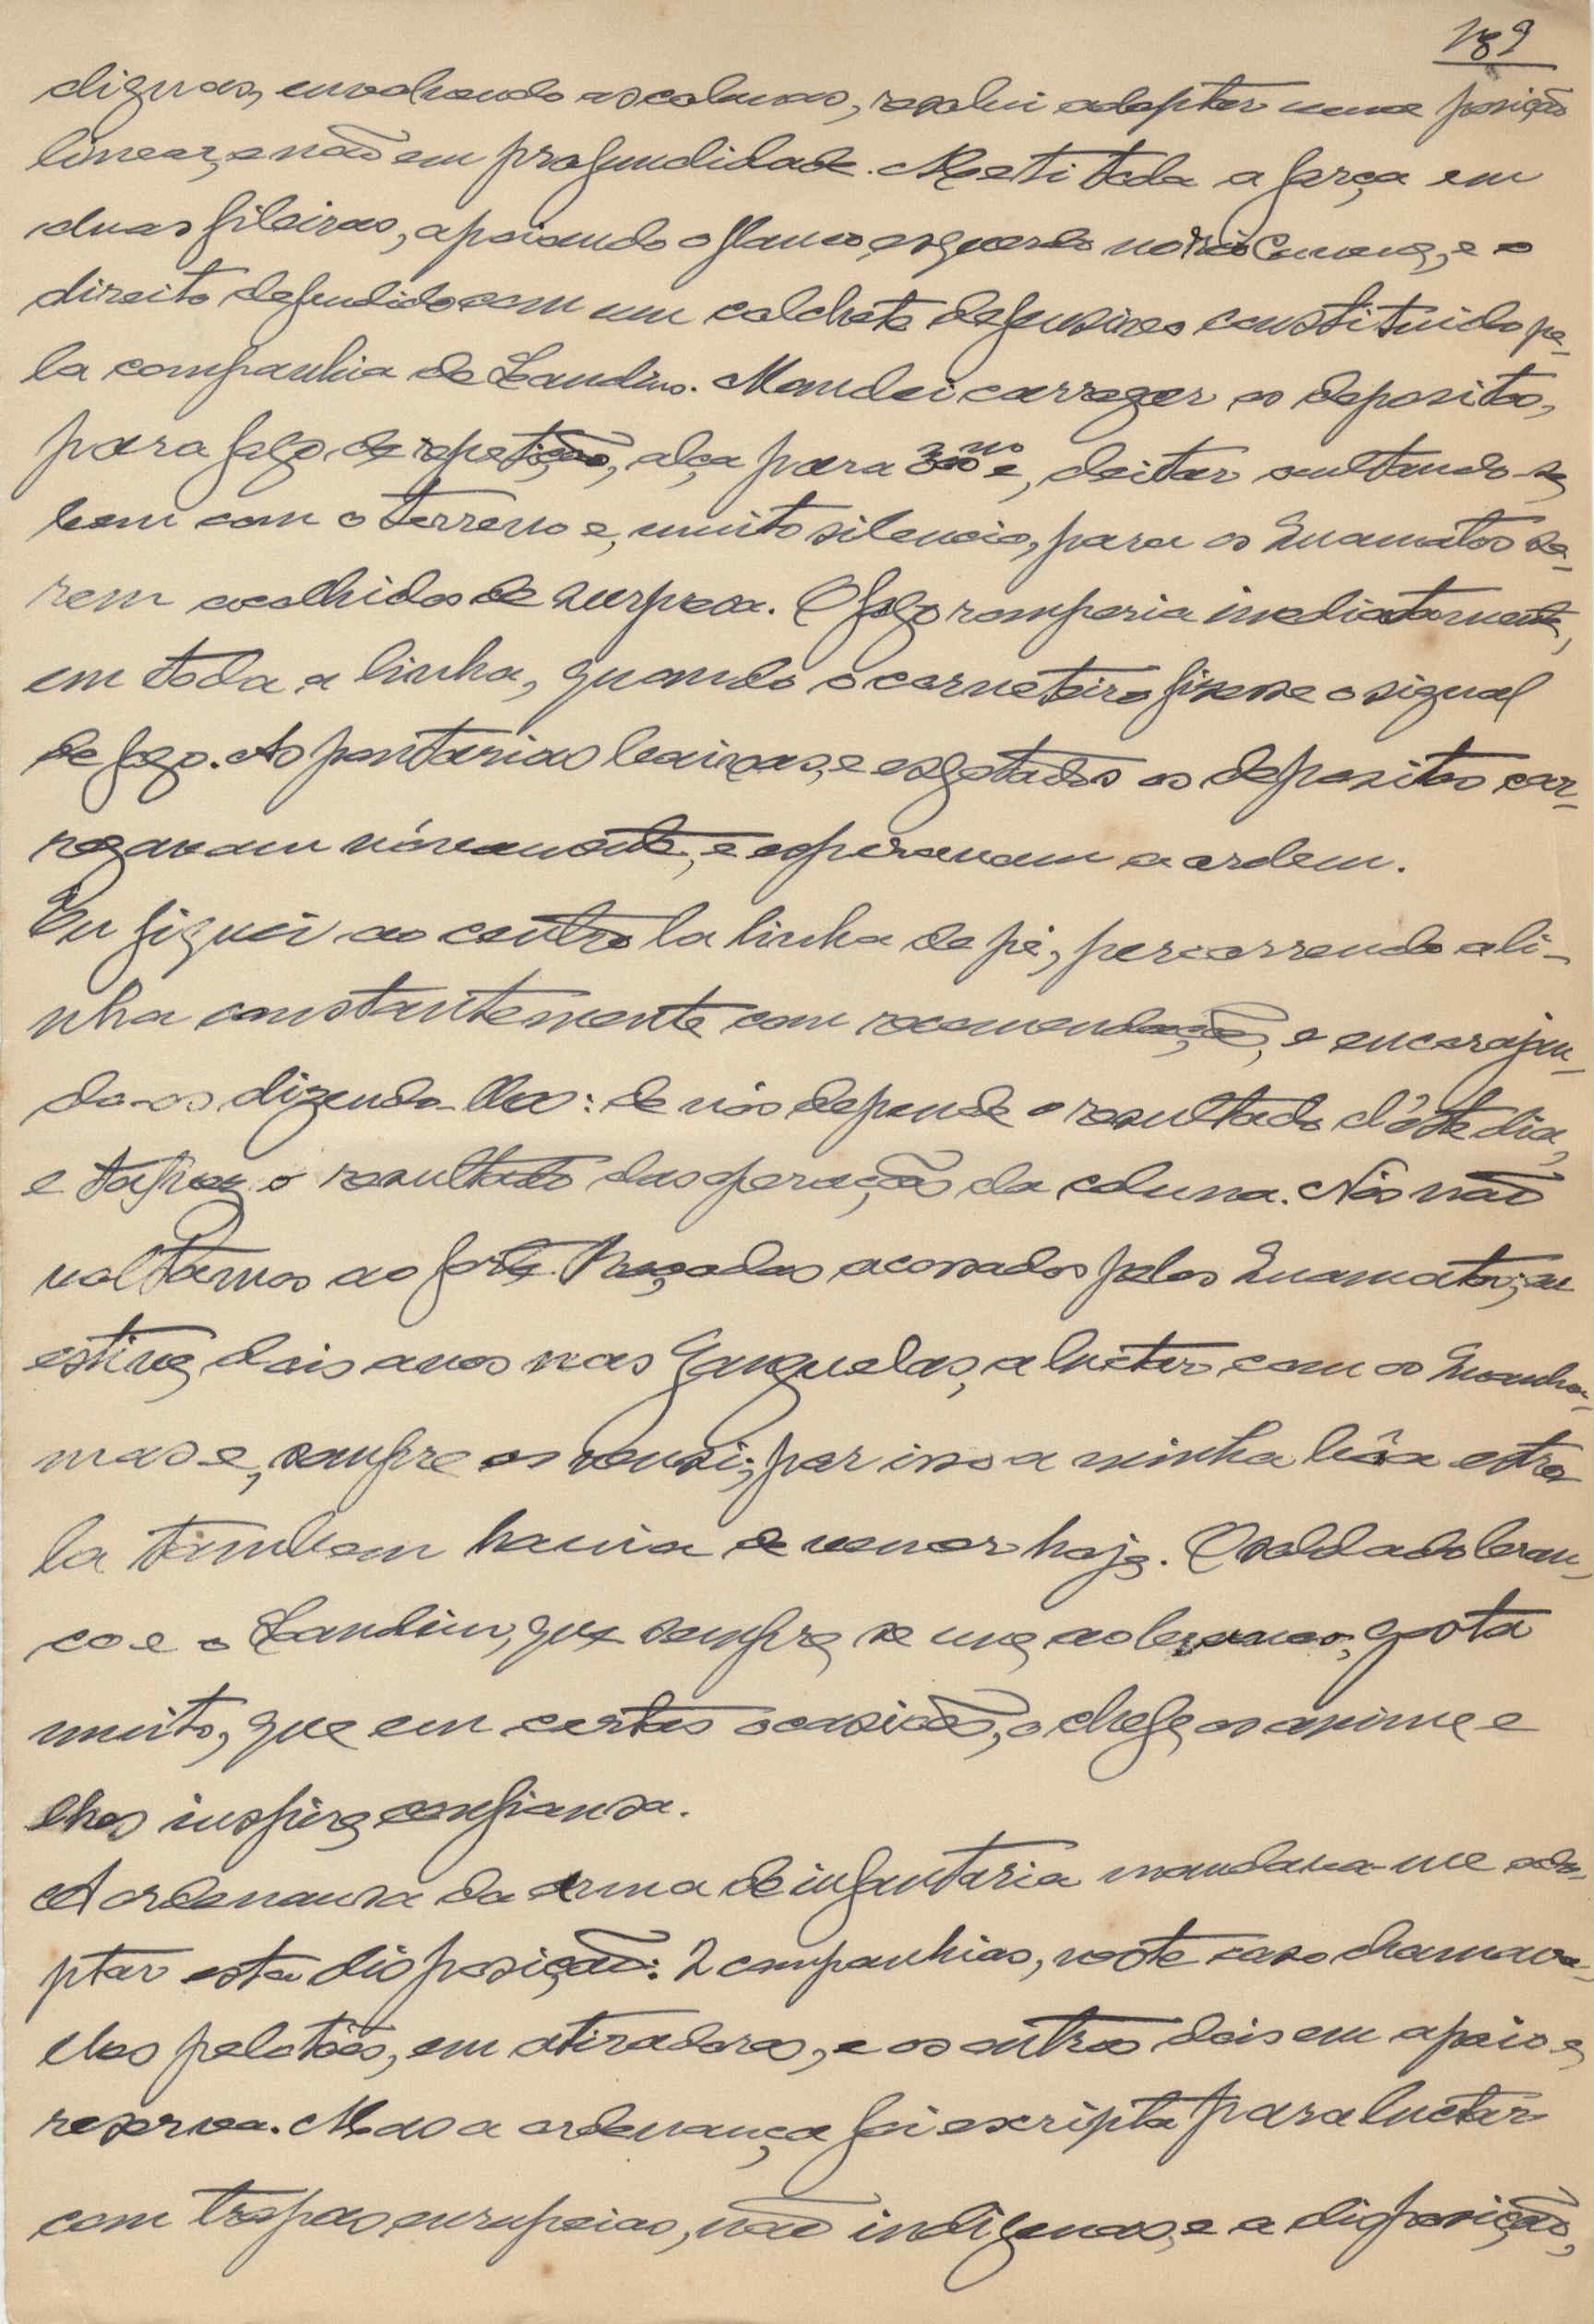 189
dignas, envolvendo as colunas, resolvi adoptar uma posição
linear, e não em profundidade. Meti toda a força em
duas fileiras, apoiando o flanco esquerdo no rio Cunene, e o
direito defendido com um colchete defensivo constituido pe-
la companhia de Landins. Mandei carregar os depositos,
para fogo de repetição, alça para e, deitar ocultando-se
bem com o terreno e, muito silencio, para os Cuamatos se-
rem colhidos de surpresa. O fogo romperia imediatamente,
em toda a linha, quando o corneteiro fizesse o signal
de fogo. As pontarias baixas, e esgotados os depositos car-
regavam nóvamente, e esperavam a ordem.
Eu fiquei ao centro la linha de pé, percorrendo a li-
nha constantemente com recomendações, e encorajan-
do-os dizendo-lhes: de nós depende o resultado d'êste dia,
e talvez o resultado das operações da coluna. Nós não
voltamos ao forte Roçadas acossados pelos Cuamatos; eu
estive dois anos nas Ganguelas, a luctar com os Cuanha-
mas e, sempre os vensi; por isso a minha bôa estre-
la tambem havia de vencer hoje. O soldado bran-
co e o Landim, que sempre se une ao branco, gosta
muito, que em certas ocasiões, o chefe os anime e
lhes inspire confiansa.
A ordenansa da arma de infantaria mandava-me ado-
ptar esta disposição: 2 companhias, neste caso chamava-
lhes pelotões, em atiradores, e os outros dois em apoio e
reserva. Mas a ordenança foi escripta para luctar
com tropas europeias, não indigenas, e a disposição,